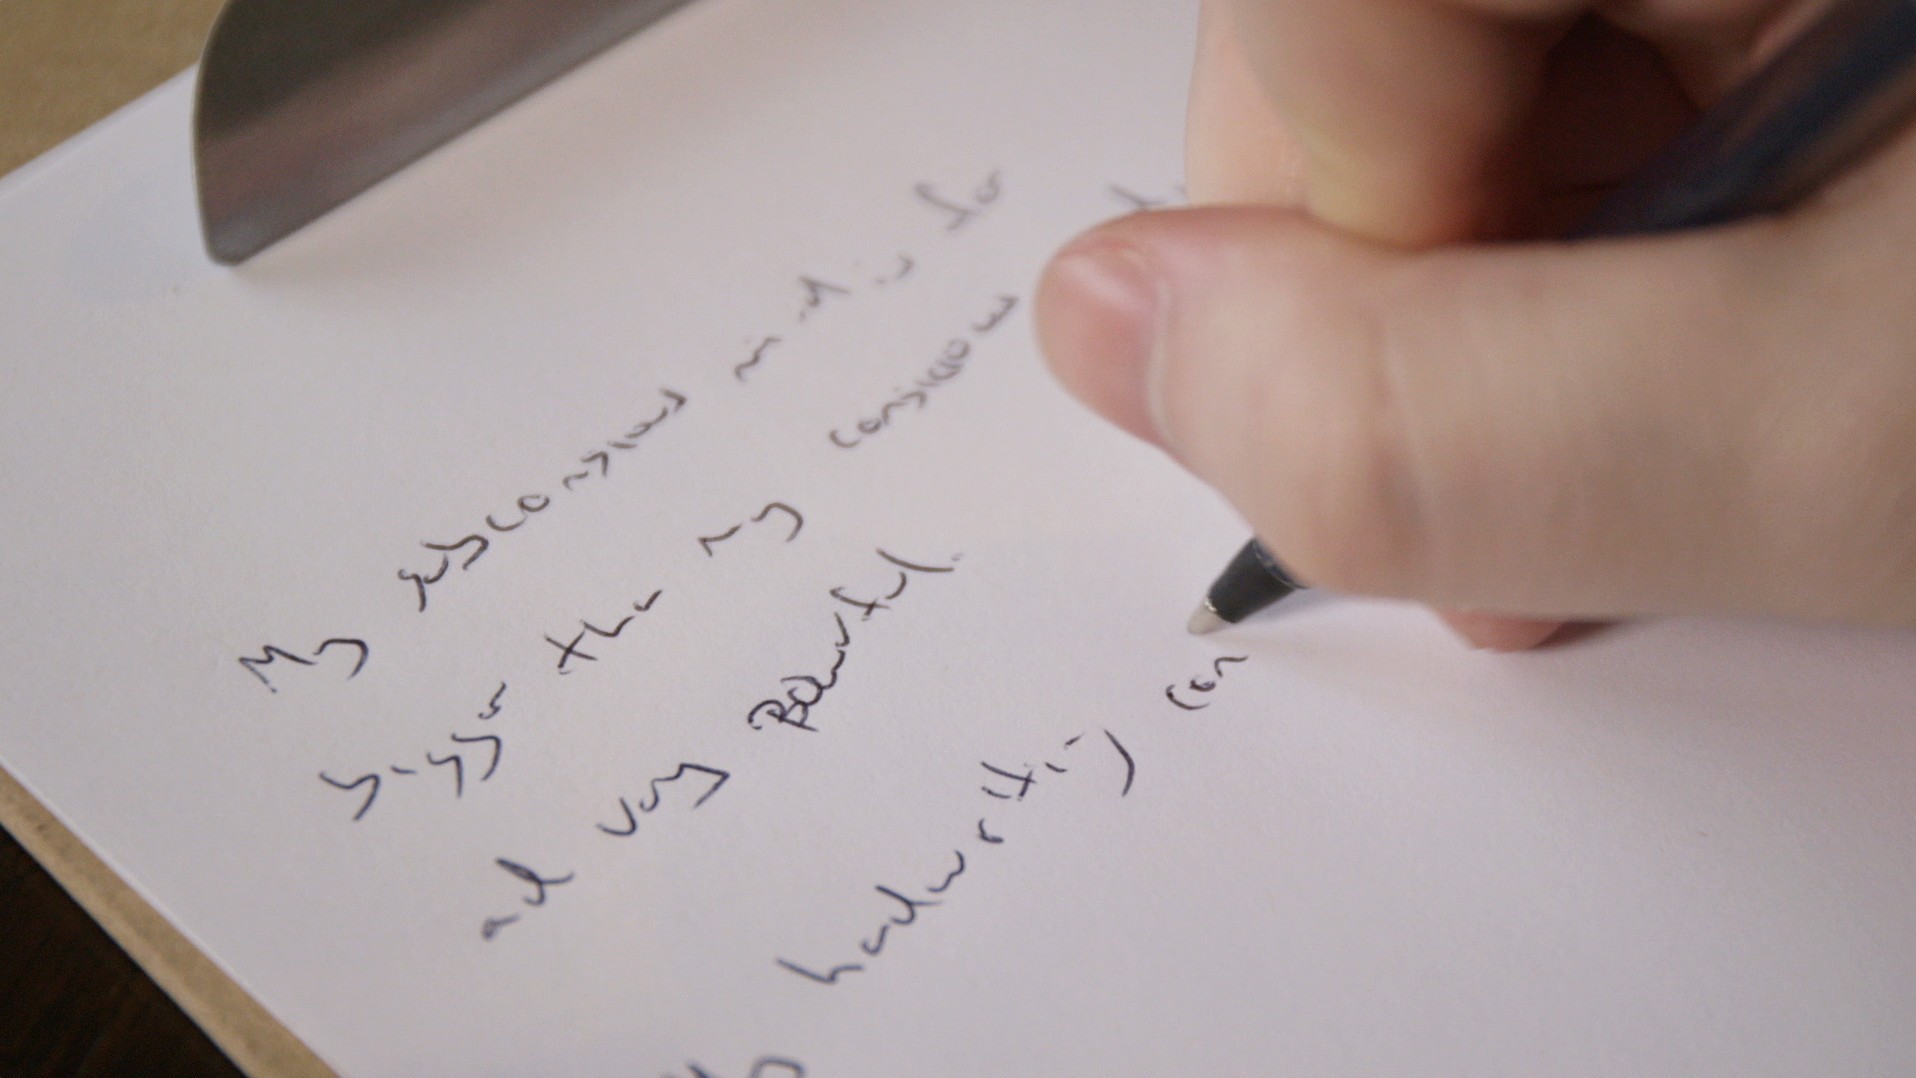 My subconsious mind is far
bigger than my consicious
and very powerful.
handwriting con